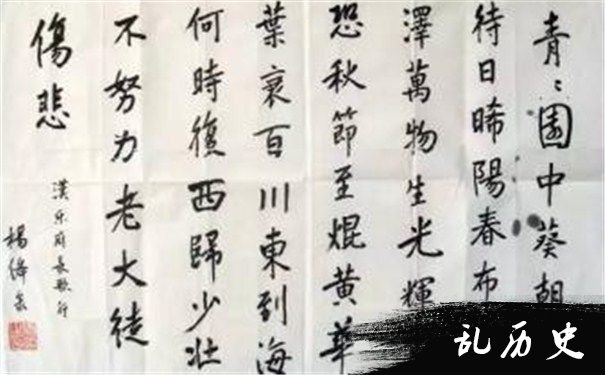 青〻園中葵朝
待日晞陽春布
澤萬物生光輝
恐秋節至焜黃華
葉衰百川東到海
何時復西歸少壯
不努力老大徒
傷悲
漢乐府長歌行
楊絳
乱历史